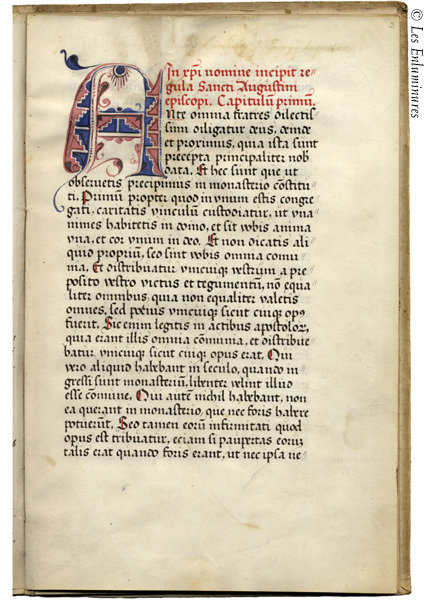 In xp̄i nomine incipit re-
gula Sancti Augustini
episcopi. Capitulū primū.
Ante omnia fratres dilectis
simi diligatur deus, deinde
et proximus, quia ista sunt
precepta principaliter nob̄
data. Et hec sunt que ut
observetis precipimus in monasterio constitu-
ti. Primum propter quod in unum estis congre
gati, caritatis vinculū custodiatur, ut una
nimes habitetis in domo, et sit vobis anima
una, et cor unum in deo. Et non dicatis ali
quid proprium, sed sint vobis omnia comu
nia. Et distribuatur unicuique vestrum a pre
posito vestro victus et tegumentū, no equa
liter omnibus, quia non equaliter valetis
omnes, sed potius unicuique sicut cuiqꝫ opꝰ
fuerit. Sic enim legitis in actibus apostoloꝝ,
quia erant illis omnia comunia, et distribue
batur unicuique sicut cuiqꝫ opus erat. Qui
vero aliquid habebant in seculo, quando in
gressi sunt monasteriū, libenter velint illud
esse comune. Qui autē nichil habebant, non
ea querant in monasterio, que nec foris habere
potuerūt. Sed tamen eorū infirmitati quod
opus est tribuatur, eciam si paupertas eorū
talis erat quando foris erant, ut nec ipsa ne
© Les Enluminures